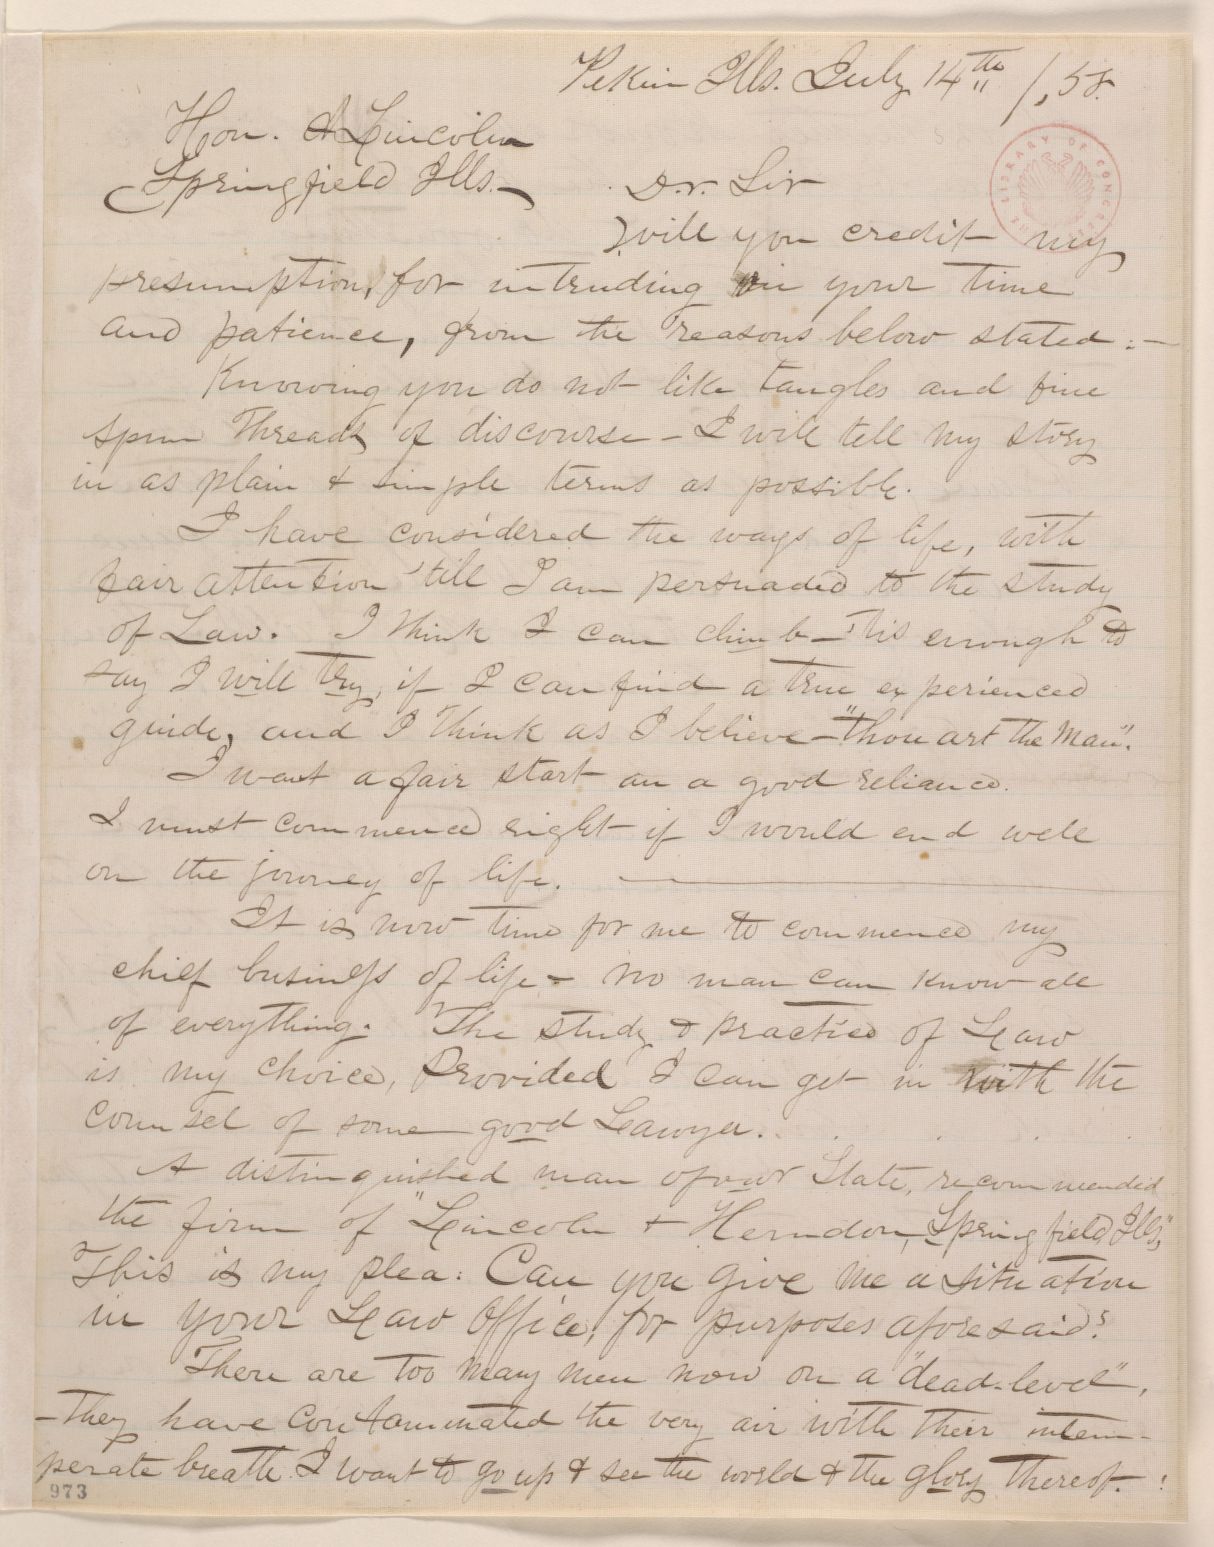 Pekin Ills. July 14th /, 58.
Hon. A Lincoln
Springfield Ills.
Dr. Sir
Will you credit my
presumption, for intruding on your time
and patience, from the reasons below stated:—
Knowing you do not like tangles and fine
spun Threads of discourse – I will tell my story
in as plain & simple terms as possible.
I have considered the ways of life, with
fair attention 'till I am persuaded to the study
of Law. I think I can climb – 'Tis enough to
say I will try, if I can find a true experienced
guide, and I think as I believe – "thou art the Man".
I want a fair start on a good reliance.
I must commence right if I would end well
on the journey of life.
It is now time for me to commence my
chief business of life – no man can know all
of everything. The study & practice of Law
is my choice, Provided I can get in with the
counsel of some good Lawyer.
A distinguished man of our State, recommended
the firm of "Lincoln & Herndon, Springfield Ills,"
This is my plea: Can you give me a situation
in your Law Office, for purposes aforesaid?
There are too many men now on a "dead-level",
– They have contaminated the very air with their intem-
perate breath. I want to go up & see the world & the glory thereof. !
973
THE LIBRARY OF CONGRESS